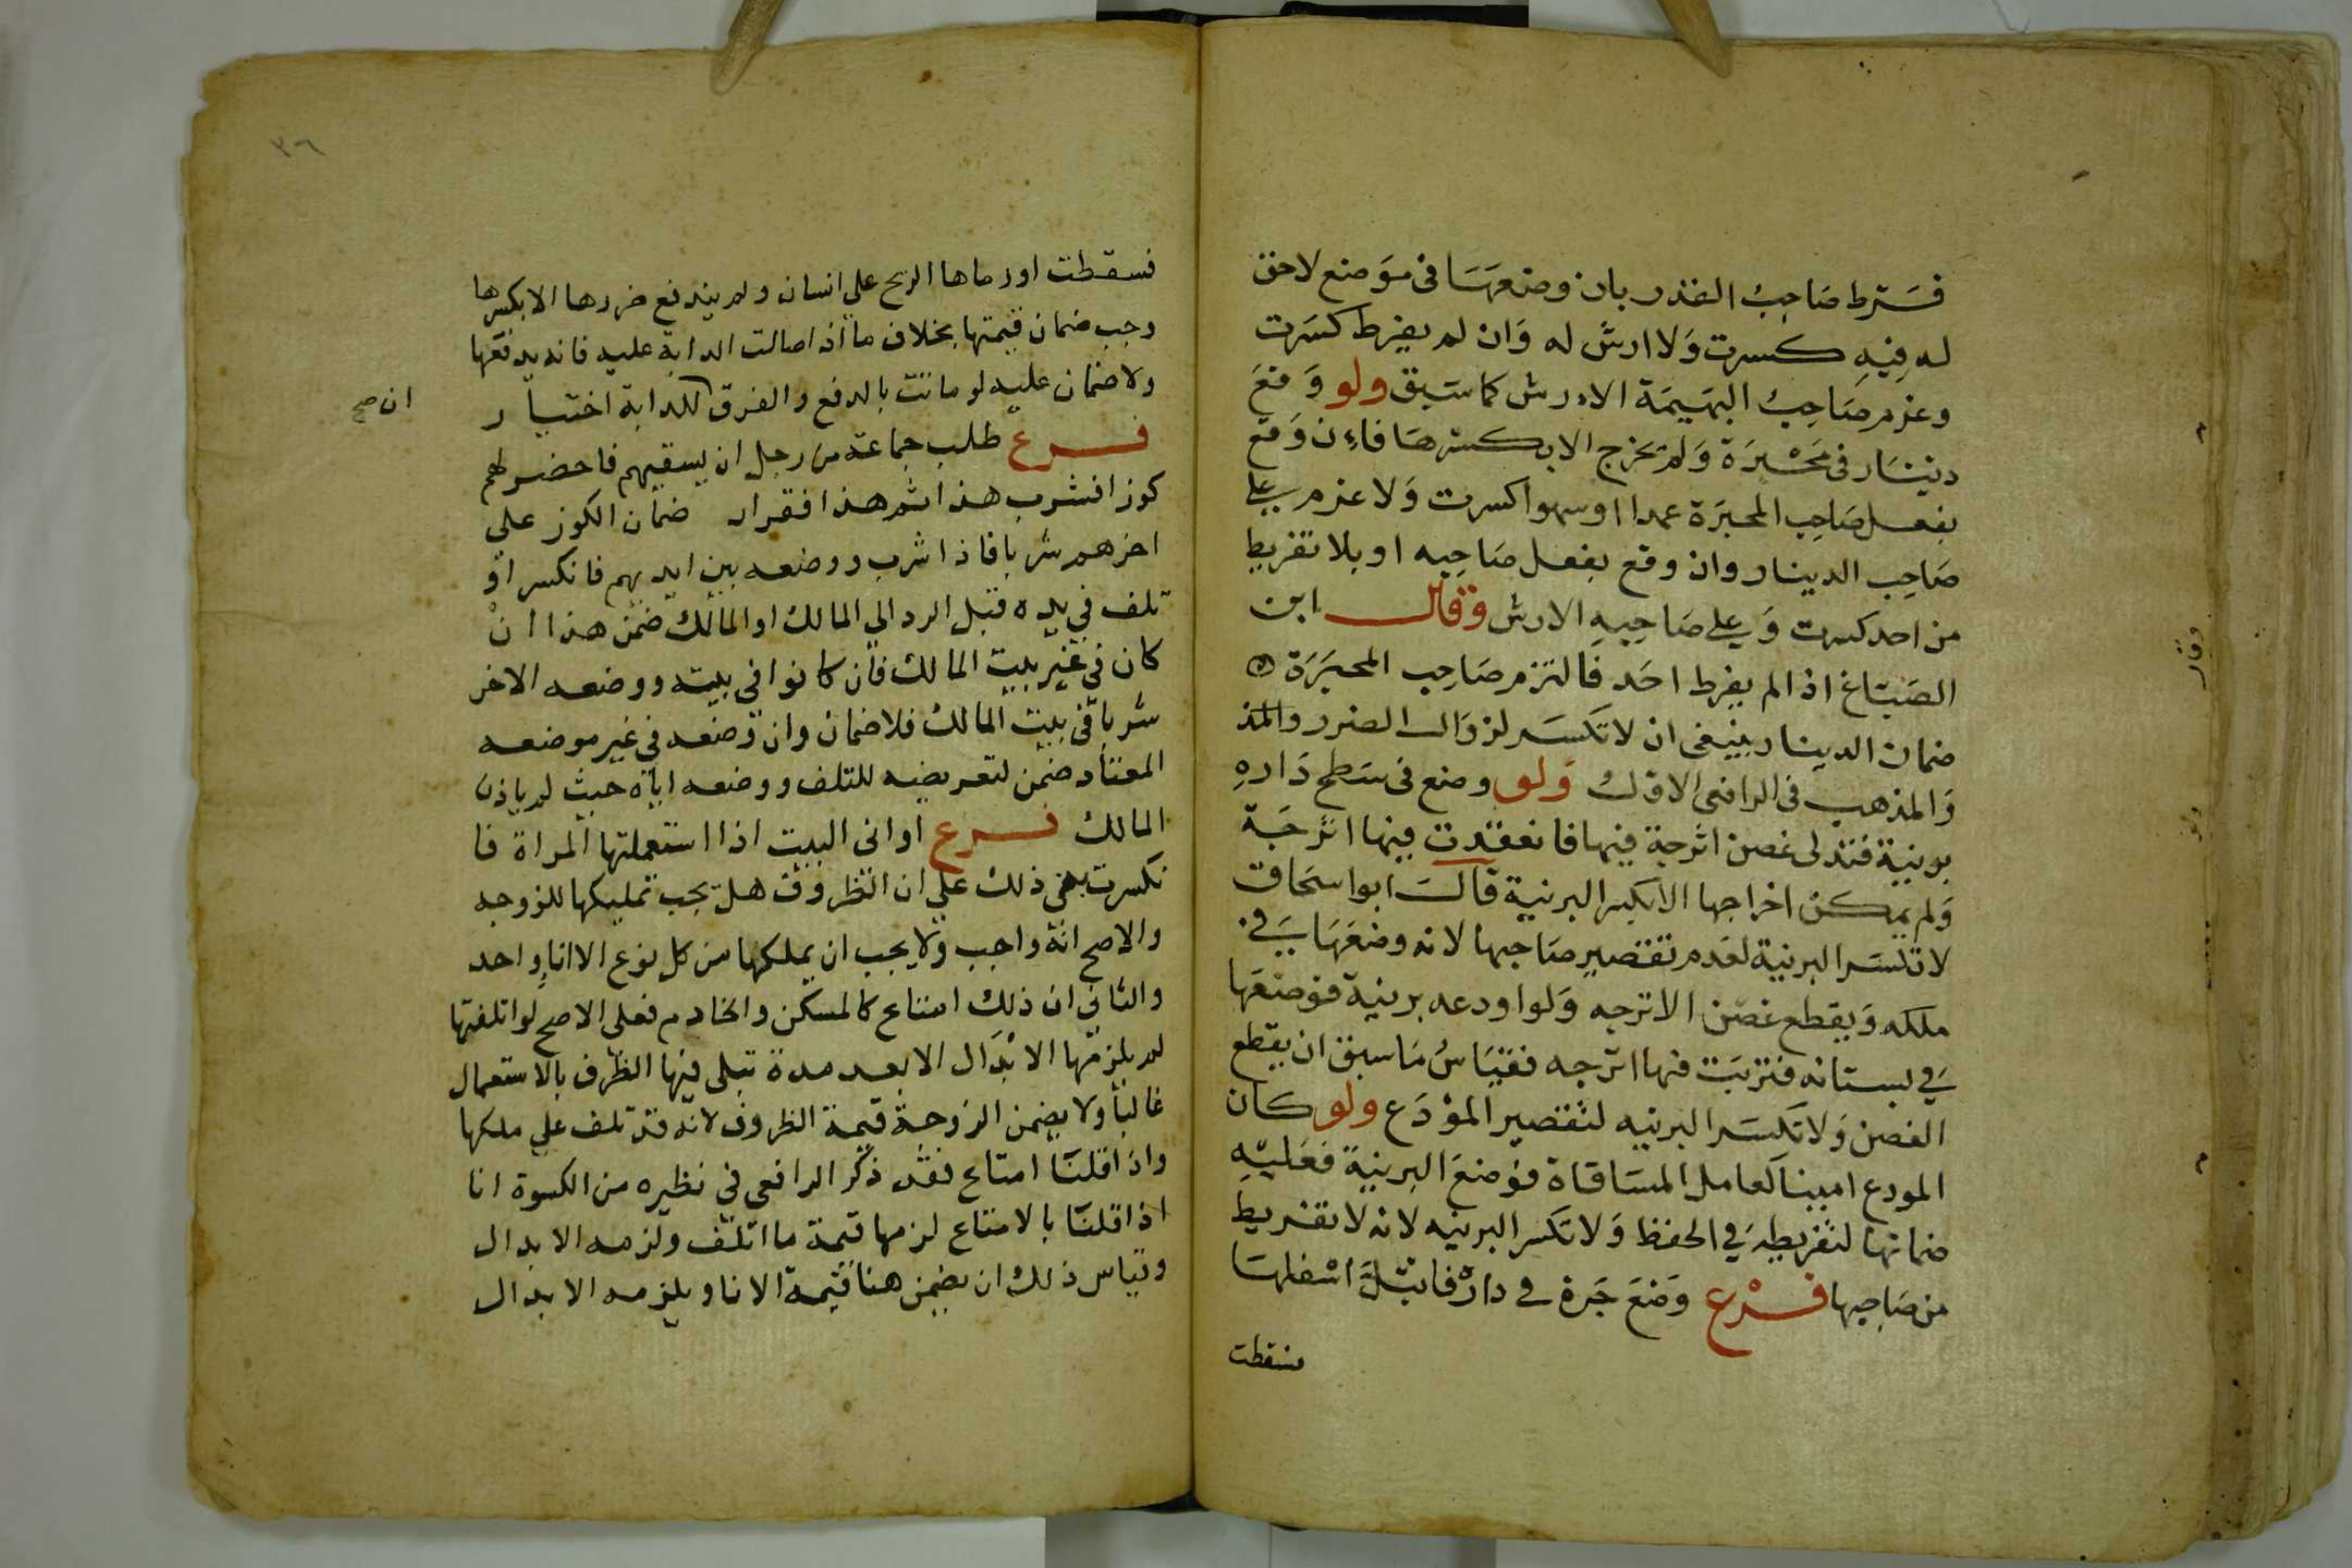 فسرط صاحب القدر بان وضعها فى موضع لاحق
له فيه كسرت ولا ارش له وان لم يفرط كسرت
وغرم صاحب البهيمة الارش كما سبق ولو وقع
دينار فى محبرة ولم يخرج الا بكسرها فاءن وقع
بفعل صاحب المحبرة عمدا او سهوا كسرت ولا غرم على
صاحب الدينار وان وقع بفعل صاحبه او بلا تفريط
من احد كسرت وعلى صاحبه الارش وقال ابن
الصباغ اذا لم يفرط احد فالتزم صاحب المحبرة
ضمان الدينار ينبغى ان لا تكسر لزوال الضرر والمذ
والمذهب فى الرافعى الاول ولو وضع فى سطح داره
برنية فتدلى غصن اترجة فيها فانعقدت فيها اترجة
ولم يمكن اخراجها الا بكسر البرنية قال ابو اسحاق
لا تكسر البرنية لعدم تقصير صاحبها لانه وضعها في
ملكه ويقطع غصن الاترجه ولو اودعه برنية فوضعها
في بستانه فتربت فيها اترجه فقياس ما سبق ان يقطع
الغصن ولا تكسر البرنيه لتقصير المودع ولو كان
المودع امينا كعامل المساقاة فوضع البرنية فعليه
ضمانها لتفريطه في الحفظ ولا تكسر البرنيه لانه لا تفريط
من صاحبها فرع وضع جرة في داره فابتل اسفلها
فسقطت
وقال
ولو
٣٦
فسقطت او رماها الريح على انسان ولم يندفع ضررها الا بكسرها
وجب ضمان قيمتها بخلاف ما اذا صالت الدابة عليه فانه يدفعها
ولا ضمان عليه لو ماتت بالدفع والفرق للدابة اختيار
ان صح
فرع طلب جماعة من رجل ان يسقيهم فاحضر لهم
كوزا فشرب هذا ثم هذا فقرار ضمان الكوز على
اخرهم شربا فاذا شرب ووضعه بين ايديهم فانكسر او
تلف في يده قبل الرد الي المالك او المالك ضمن هذا ان
كان في غير بيت المالك فان كانوا في بيته ووضعه الاخر
شربا في بيت المالك فلا ضمان وان وضعه في غير موضعه
المعتاد ضمن لتعريضه للتلف ووضعه اياه حيث لم ياذن
المالك فرع اوانى البيت اذا استعملتها المراة فا
نكسرت بغى ذلك على ان الظروف هل يجب تمليكها للزوجه
والاصح انه واجب ولا يجب ان يملكها من كل نوع الا انا واحد
والثاني ان ذلك امتاع كالمسكن والخادم فعلى الاصح لو اتلفتها
لم يلزمها الابدال الا بعد مدة تبلى فيها الظرف بالاستعمال
غالبا ولا يضمن الزوجة قيمة الظروف لانه قد تلف على ملكها
واذا قلنا امتاع فقد ذكر الرافعى في نظيره من الكسوة انا
اذا قلنا بالامتاع لزمها قيمة ما اتلف ولزمه الابدال
وقياس ذلك ان يضمن هنا قيمة الانا ويلزمه الابدال